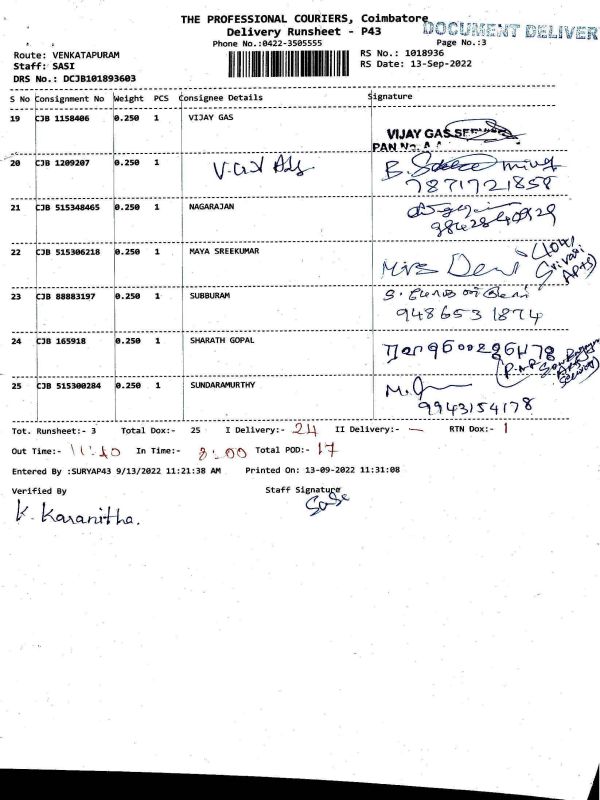 THE PROFESSIONAL COURIERS, Coimbatore
DOCUMENT DELIVER
Delivery Runsheet - P43
Phone No.:0422-3505555
Page No.:3
Route: VENKATAPURAM
RS No.: 1018936
Staff: SASI
RS Date: 13-Sep-2022
DRS No.: DCJB101893603
S No Consignment No Weight PCS Consignee Details Signature
19 CJB 1158406 0.250 1 VIJAY GAS
VIJAY GAS
PAN No.
20 CJB 1209207 0.250 1
7871721858
21 CJB 515348465 0.250 1 NAGARAJAN
22 CJB 515306218 0.250 1 MAYA SREEKUMAR
Mrs Devi
23 CJB 88883197 0.250 1 SUBBURAM
9486531874
24 CJB 165918 0.250 1 SHARATH GOPAL
25 CJB 515300284 0.250 1 SUNDARAMURTHY
9943154178
Tot. Runsheet:- 3 Total Dox:- 25 I Delivery:- 24 II Delivery:- — RTN Dox:- 1
Out Time:- 11:40 In Time:- 8:00 Total POD:- 17
Entered By :SURYAP43 9/13/2022 11:21:38 AM Printed On: 13-09-2022 11:31:08
Verified By Staff Signature
K. Karanitha.